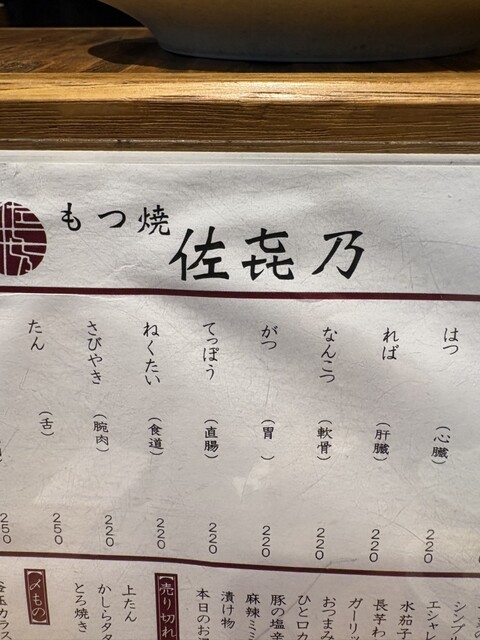 もつ焼
佐㐂乃
はつ（心臓）220
れば（肝臓）220
なんこつ（軟骨）220
がつ（胃）220
てっぽう（直腸）220
ねくたい（食道）220
さびやき（腕肉）220
たん（舌）250
250
シンプ
エシャ
水茄子
長芋わ
ガーリッ
おつまみ
ひと口カ
豚の塩
麻辣ミ
漬け物
本日のお
売り切れ
上たん
かしらタ
とろ焼き
〆もの
釜玉カラス